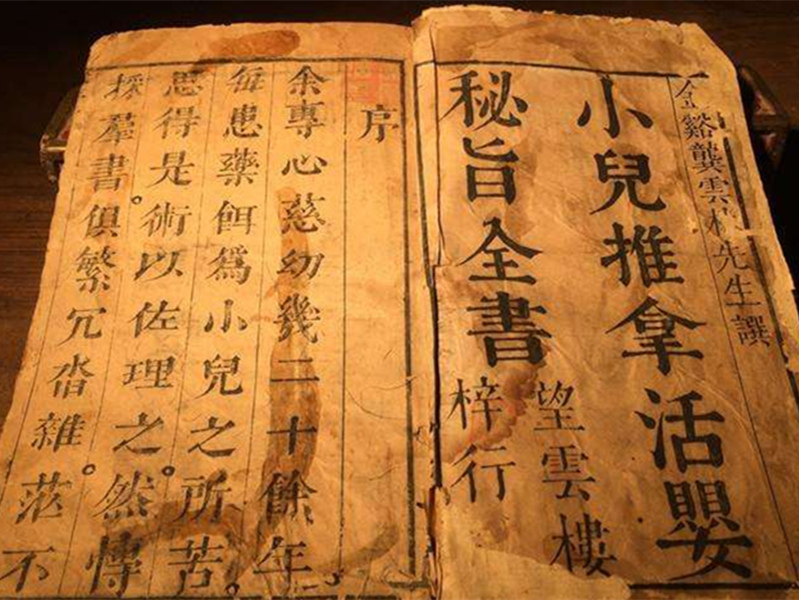 金谿龔雲林先生譔
小兒推拿活嬰
秘旨全書
望雲樓
梓行
序
余專心慈幼幾二十餘年。
每患藥餌爲小兒之所苦。
思得是術以佐理之。然愽
採羣書。俱繁冗沓雜。茫不